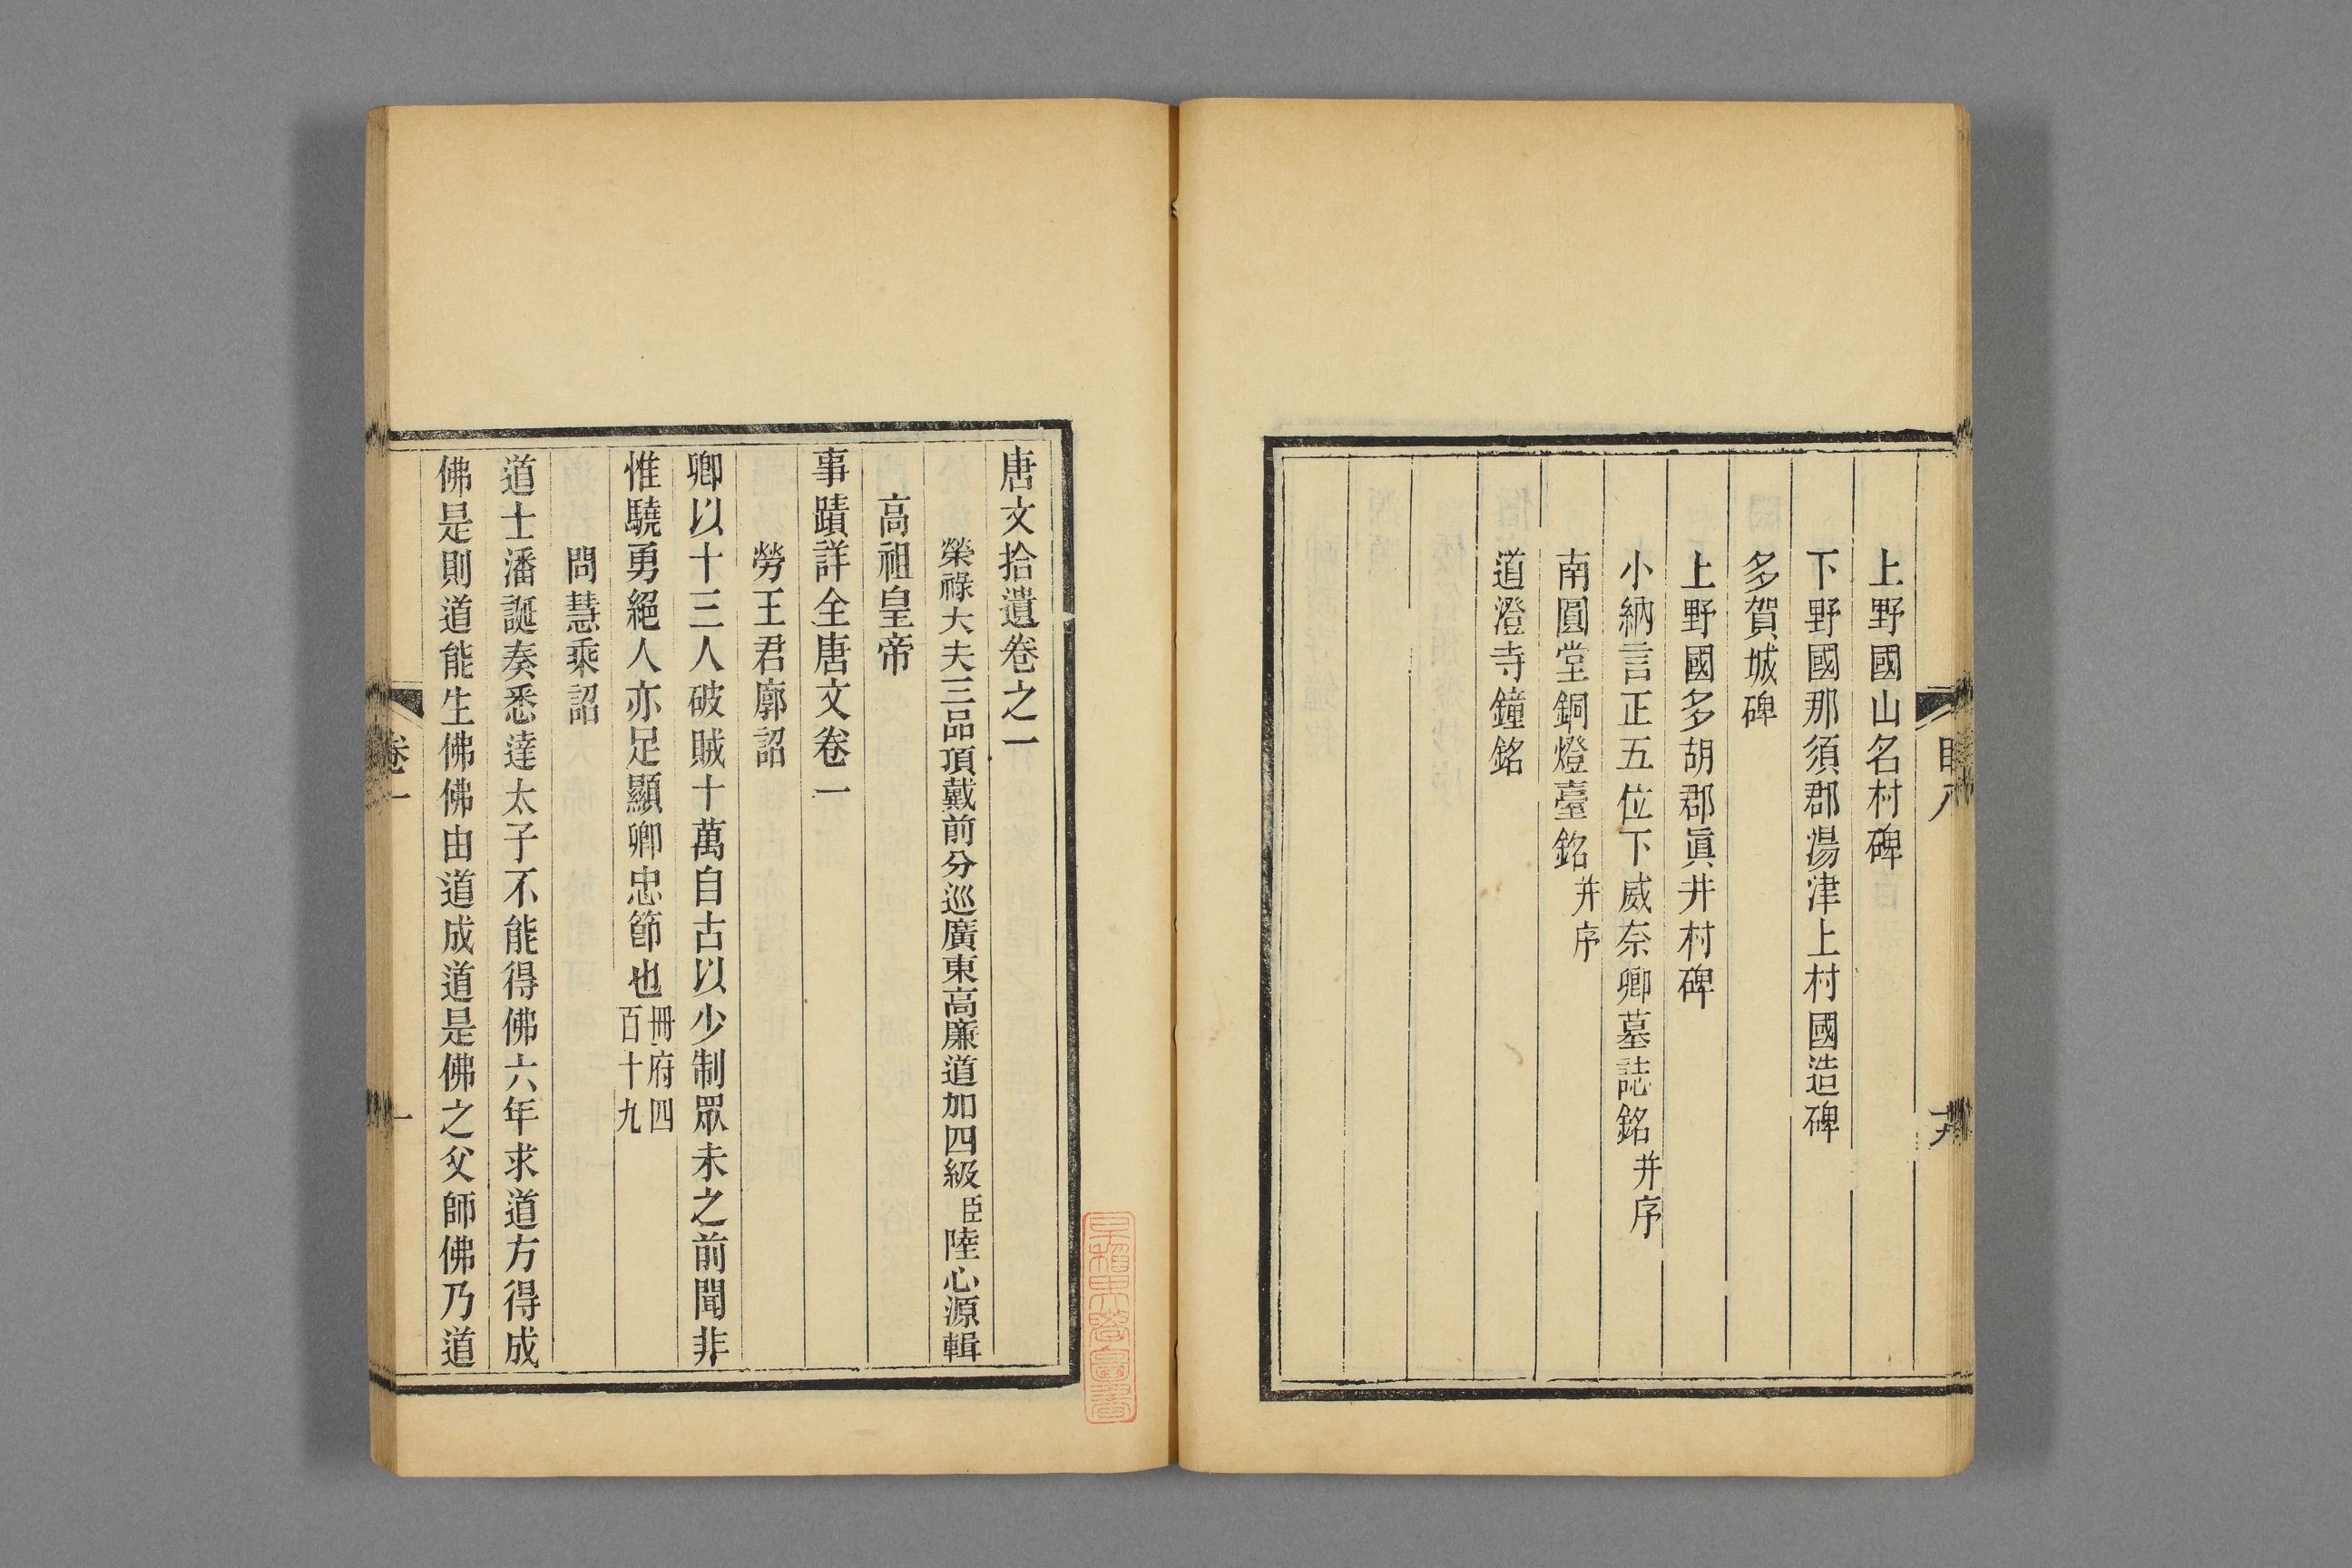 上野國山名村碑
下野國那須郡湯津上村國造碑
多賀城碑
上野國多胡郡眞井村碑
小納言正五位下威奈卿墓誌銘并序
南圓堂銅燈臺銘并序
道澄寺鐘銘
唐文拾遺卷之一
榮祿大夫三品頂戴前分巡廣東高廉道加四級臣陸心源輯
高祖皇帝
事蹟詳全唐文卷一
勞王君廓詔
卿以十三人破賊十萬自古以少制眾未之前聞非
惟驍勇絕人亦足顯卿忠節也冊府四百十九
問慧乘詔
道士潘誕奏悉達太子不能得佛六年求道方得成
佛是則道能生佛佛由道成道是佛之父師佛乃道
卷一
一